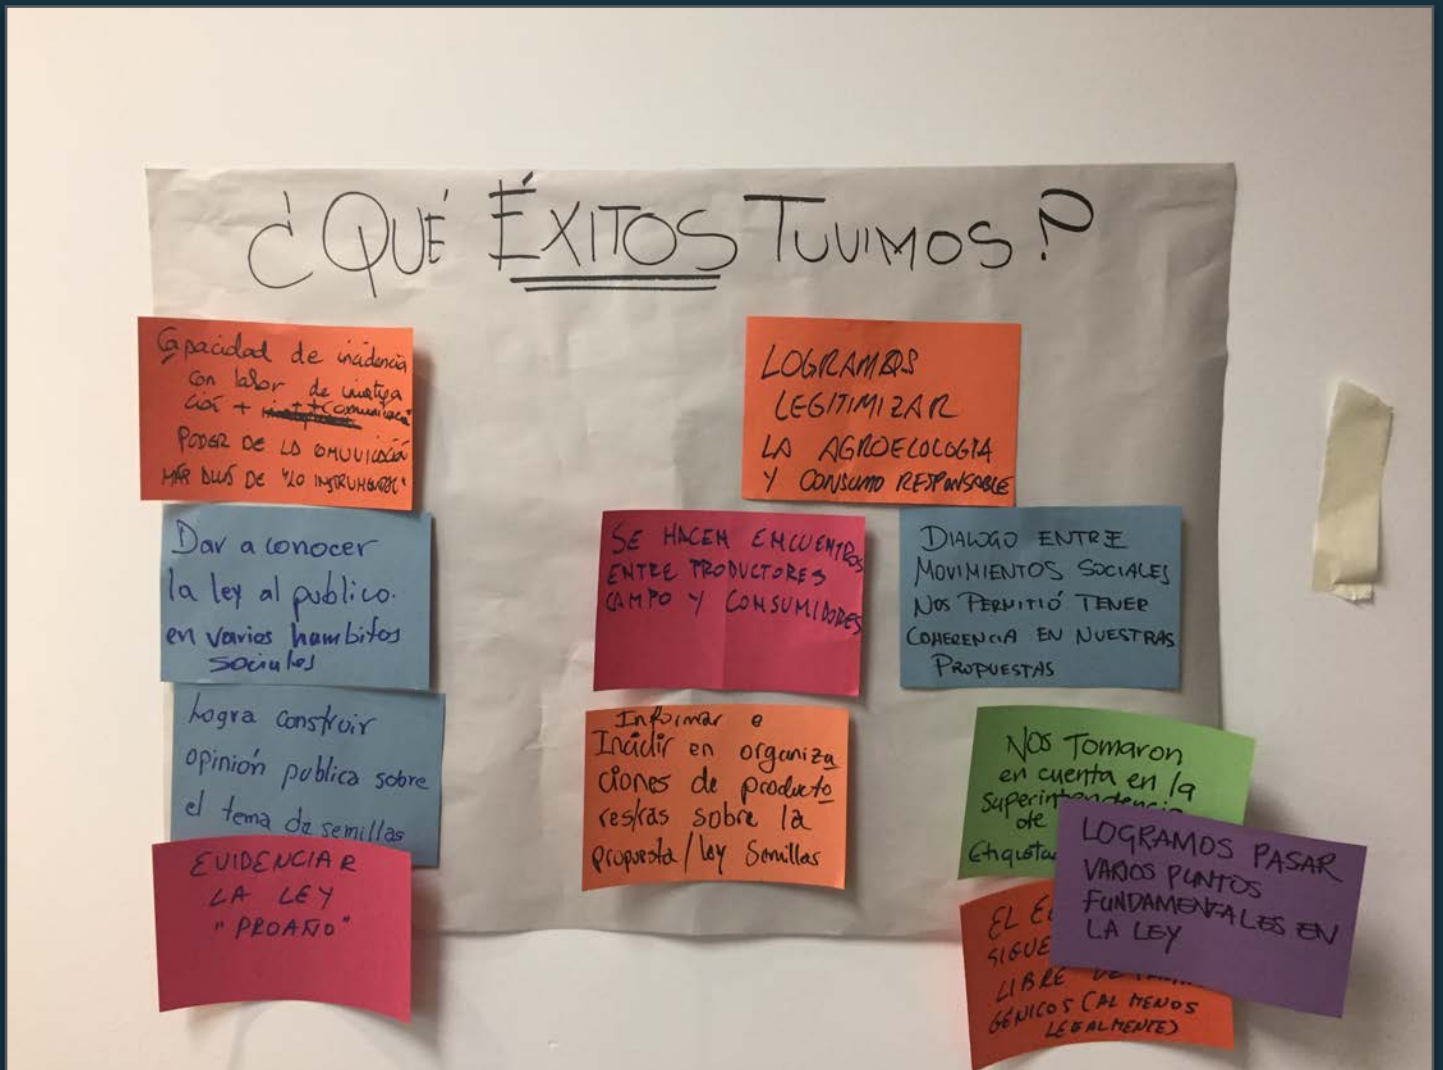 ¿QUÉ ÉXITOS TUVIMOS?
Capacidad de incidencia
con labor de investiga
ción +
PODER DE LA COMUNICACIÓN
MÁS ALLÁ DE "LO INSTRUMENTAL"
Dar a conocer
la ley al publico.
en varios hambitos
sociales
Logra construir
opinión publica sobre
el tema de semillas
EVIDENCIAR
LA LEY
"PROAÑO"
LOGRAMOS
LEGITIMIZAR
LA AGROECOLOGIA
Y CONSUMO RESPONSABLE
SE HACEN ENCUENTROS
ENTRE PRODUCTORES
CAMPO Y CONSUMIDORES
DIALOGO ENTRE
MOVIMIENTOS SOCIALES
NOS PERMITIÓ TENER
COHERENCIA EN NUESTRAS
PROPUESTAS
Informar e
Incidir en organiza
ciones de producto
res/ras sobre la
propuesta/ley Semillas
NOS Tomaron
en cuenta en la
Superintendencia
de
LOGRAMOS PASAR
VARIOS PUNTOS
FUNDAMENTALES EN
LA LEY
EL
SIGUE
LIBRE DE
GÉNICOS (AL MENOS
LEGALMENTE)